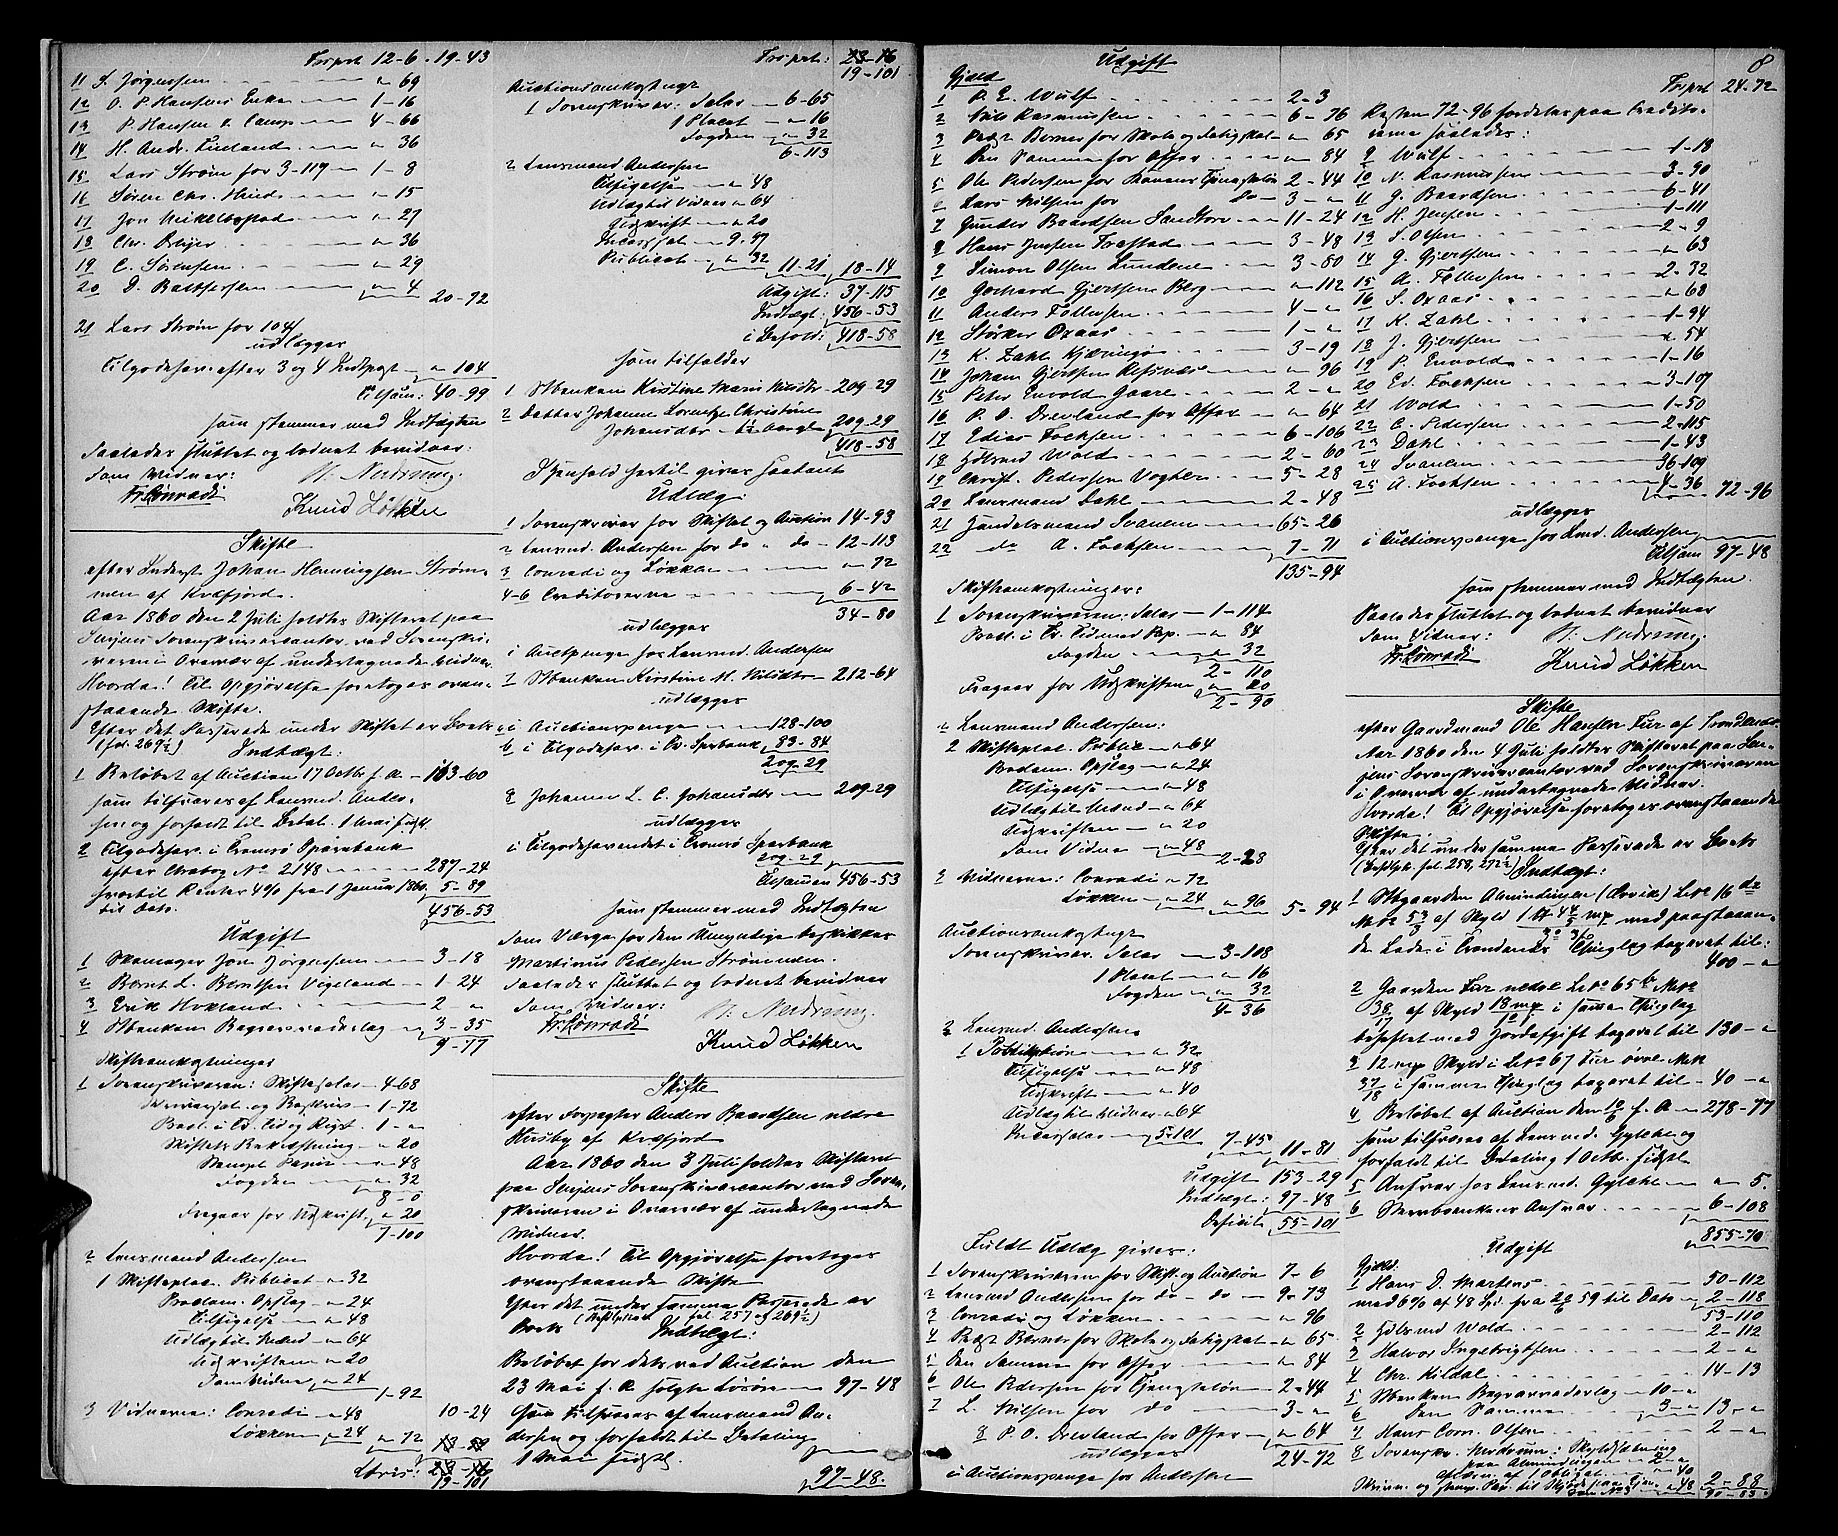 Frsprt 12-6. 19-43
11 S. Jørgensen - " 69
12 O. P. Hansens Enke - 1-16
13 P. Hansen & Comp - 4-66
14 H. Andr. Luuland - " 36
15 Lars Strøm for 3-119 - 1-8
16 Sören Chr. Hind - " 15
17 Jon Mikelbostad - " 27
18 Chr. - " 36
19 C. Sørensen - " 29
20 D. Balthersen - " 4 20-72
21 Lars Strøm for 104
udlægges
Tilgodehav. efter 3 og 4 Indtpost - " 104
Tilsam: 40-99
som stemmer med Indtægten
Saaledes sluttet og lodnet bevidner.
Som Vidner: N. Nedrum.
Fr Conradi Knud Løkken
Skifte
efter Inderst Johan Henningsen Strøm-
men af Kvæfjord.
Aar 1860 den 2 Juli holdtes Skifteret paa
Senjens Sorenskrivercontor ved Sorenskri-
veren i Overvær af undertegnede Vidner.
Hvorda! Til Opgjørelse foretoges oven-
staaende Skifte.
Efter det Passerede under Skiftet er Boets
(fol. 269½) Indtægt:
1 Beløbet af Auction 17 Octbr f. A. - 163-60
som tilsvares af Lensmd. Ander-
sen og forfaldt til Betal. 1 Mai sidstl.
2 Tilgodehav. i Tromsø Sparebank
efter Contrabog No 2148 - 287-24
hvortil Renter 4% fra 1 Januar 1860. 5-89
til Dato. 456-53
Udgift
1 Skomager Jon Jørgensen - 3-18
2 Bernt L. Berntsen Vigeland - 1-24
3 Erik Hokland - 2-"
4 Stbenkens Begravevederlag - 3-35
9-77
Skifteomkostninger
1 Sorenskriveren: Skiftesalar - 4-68
Incassosal. og Beskriv - 1-72
Besl. i Cr. Tid og Rigst. 1-"
Skiftets Bekræftning - " 20
Stempl. Papir - " 48
Fogden - " 32
8-0
Fragaar for Udskrift. " 20
7-100
2 Lensmand Andersen
1 Skifteplac. Publicat - " 32
Proclam. Opslag - " 24
Tilsigelse - " 48
Udlagt til Mænd - " 64
Udskriften - " 20
Som Vidne - " 24
1-92
3 Vidnerne: Conradi - " 48 10-24
Løkken " 24 " 72
Latris: 19-101
Frsprt: 23-16
19-101
Auctionsomkostngr
1 Sorenskriver: Salar - 6-65
1 Placat - " 16
Fogden " 32
6-113
2 Lensmand Andersen
Tilsigelse - " 48
Udlagt til Vidner " 64
Udskrift - " 20
Incassosal - 9-97
Publicat - " 32
11-21 18-14
Udgift: 37-115
Indtægt: 456-53
i Behold: 418-58
som tilfalder
1 Stbenken Kirstine Marie Nilsdtr 209-29
2 Datter Johanne Lorentze Christine
Johansdtr - 209-29
418-58
I Henhold hertil gives saalant
Udlæg:
1 Sorenskriver for Skiftet og Auction 14-93
2 Lensmd. Andersen for do " do - 12-113
3 Conradi og Løkken - " 72
4-6 Creditorerne - 6-42
34-80
udlægges
i Auctpenge hos Lensmd. Andersen
7 Stbenken Kirstine M. Nilsdtr 212-64
udlægges
a i Auctionspenge - 128-100
b i Tilgodehav. i Tr. Sparbank 83-84
209-29
8 Johanne L. C. Johansdtr - 209-29
udlægges
i Tilgodehavendet i Tromsø Sparbank
209-29
Tilsamen 456-53
som stemmer med Indtægten
Som Værge for den Umyndige beskikkes
Martinus Pedersen Strømmen.
Saaledes sluttet og lodnet bevidner
Som Vidner: N. Nedrum.
Fr Conradi Knud Løkken
Skifte
efter Forpagter Anders Baardsen nedre
Husby af Kvæfjord
Aar 1860 den 3 Juli holdtes Skifteret
paa Senjens Sorenskrivercontor ved Soren-
skriveren i Overvær af undertegnede
Vidner.
Hvorda! Til Opgjørelse foretoges
ovenstaaende Skifte
Efter det under samme Passerede er
Boets (fol 257 og 269½) Indtægt:
Beløbet for dets ved Auction den
23 Mai f. A. solgte Løsøre - 97-48
som tilsvares af Lensmand An-
dersen og forfaldt til Betaling
1 Mai sidstl.
97-48.
8
Udgift
Gjæld
1 P. E. Wulf - 2-3
2 Niels Rasmussen - 6-76
3 Præst Berner for Skole og Fatigskat - " 65
4 Den Samme for Offer - " 84
5 Ole Pedersen for Konens Tjenesteløn 2-44
6 Lars Nilsen for do - 3-"
7 Gunder Baardsen Sandtorv - 11-24
8 Hans Jensen Trastad - 3-48
9 Simon Olsen Lundene - 3-80
10 Gerhard Gjertsen Berg - " 112
11 Anders Tollefsen - 4-"
12 Størker Oxaas - 1-"
13 K. Zahl Kjæringø - 3-19
14 Johan Gjertsen Refsnæs - " 96
15 Peter Envold Gaare - 2-"
16 P. O. Drevland for Offer - " 64
17 Edias Fochsen - 6-106
18 Hilsmd Wold - 2-60
19 Christ. Pedersen Vogter - 5-28
20 Lensmand Dahl - 2-48
21 Handelsmand Svanem - 65-26
22 do A. Fochsen - 7-71
135-94
Skifteomkostninger:
1 Sorenskriveren: Salar - 1-114
Besl. i Cr. Tid med Pap. - " 84
Fogden - " 32
2-110
Fragaar for Udskriften " 20
2-90
2 Lensmand Andersen:
2 Skifteplac. Public - " 64
Proclam. Opslag - " 24
Tilsigelse - " 48
Udlagt til Mænd - " 64
Udskriften - " 20
Som Vidne - " 48
2-28
3 Vidnerne: Conradi " 72
Løkken " 24 " 96 5-94
Auctionsomkostngr
Sorenskriver. Salar - 3-108
1 Placat - " 16
Fogden - " 32
4-36
2 Lensmd. Andersen
1 Publikation - " 32
Tilsigelse - " 48
Udskrift - " 40
Udlagt til Vidner " 64
Incassosalar - 5-101
7-45 11-81
Udgift 153-29
Indtægt: 97-48
Deficit 55-101
Fuldt Udlæg gives:
1 Sorenskriveren for Skift. og Auction 7-6
2 Lensmd Andersen for do - do - 9-73
3 Conradi og Løkken - " 96
4 Præst Berner for Skole og Fatigskat - " 65
5 Den Samme for Offer - " 84
6 Ole Pedersen for Tjenesteløn - 2-44
7 L. Nilsen for do - 3-"
8 P. O. Drevland for Offer - " 64
udlægges 24-72
i Auctionspenge hos Andersen
Frsprt 24-72
Resten 72-96 fordeles paa Credito-
rerne saaledes:
9 Wulf - 1-18
10 N. Rasmussen - 3-90
11 G. Baardsen - 6-41
12 H. Jensen - 1-111
13 S. Olsen - 2-9
14 G. Gjertsen - " 63
15 A. Tollefsen - 2-32
16 S. Oxaas - " 68
17 K. Zahl - 1-94
18 J. Gjertsen - " 54
19 P. Envold - 1-16
20 Ed. Fochsen - 3-107
21 Wold - 1-50
22 C. Pedersen - 2-115
23 Dahl - 1-43
24 Svanem - 36-109
25 A. Fochsen - 4-36
72-96
udlægges
i Auctionspenge hos Lmd. Andersen
Tilsam 97-48
som stemmer med Indtægten.
Saaledes sluttet og lodnet bevidner
Som Vidner: N. Nedrum.
Fr Conradi Knud Løkken
Skifte
efter Gaardmand Ole Hansen Fur af Trondenæs
Aar 1860 den 4 Juli holdtes Skifteret paa Sen-
jens Sorenskrivercontor ved Sorenskriveren
i Overvær af undertegnede Vidner.
Hvorda! Til Opgjørelse foretoges ovenstaaende
Skifte.
Efter det under samme Passerede er Boets
(fol. 258, 272½) Indtægt:
1 Stgaarden Almindingen (Ervik) Løbe 16 de
Mat. 53/3 af Skyld 1 44/5 mp med paastaaen-
de Lade i Trondenæs Thinglag taxeret til:
400-"
2 Gaarden Fur nedre Løbe 65 b Mat.
38/17 af Skyld 18 mp i samme Thinglag
beheftet med Jordafgift taxeret til 130-"
3 12 mp Skyld i Løbe 67 Fur øvre Mat
37/78 i samme Thinglag taxeret til - 40-"
4 Beløbet af Auction den 10/6 f. A - 278-77
som tilsvares af Lensmd. Gylche og
forfaldt til Betaling 1 Octbr. sidstl
5 Ansvar hos Lensmd. Gylche - " 5.
6 Sterboenkens Ansvar - 6-108
855-70
Udgift
Gjæld:
1 Hans D. Martens - 50-112
med 6% af 48 Spd. fra 20/6 59 til Dato - 2-118
53-110
2 Hilsmd Wold - 2-112
3 Halvor Ingebrigtsen - 2-"
4 Chr. Kildal - 14-13
5 Stbenken Begravevederlag - 10-"
6 Den Samme - 3-" 13-"
7 Hans Corn. Olsen - 2-"
8 Sorenskr. Nedrum: Skyldsætning
paa Almindingen - 2-"
aflæsn. af 1 Obligat. - " 40
Skriv. og stemp. Pap. til Skjøde paa Ejen. " 48 2-88
90-83